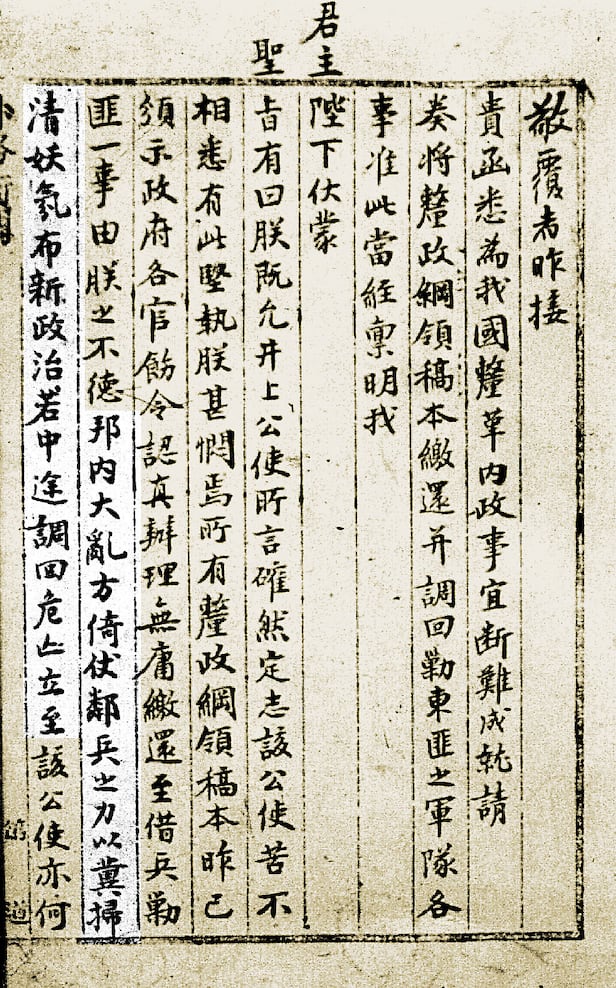 敬覆者昨接
貴函悉為我國釐革內政事宜断難成就請
奏將釐政綱領稿本繳還并調回勦東匪之軍隊各
事准此當經稟明我
君主陛下伏蒙
聖旨有曰朕既允井上公使所言確然定志該公使苦不
相悉有此堅執朕甚憫焉所有釐政綱領稿本昨已
頒示政府各官飭令認真辦理無庸繳還至借兵勦
匪一事由朕之不德邦內大亂方倚仗鄰兵之力以冀掃
清妖氛布新政治若中途調回危亡立至該公使亦何